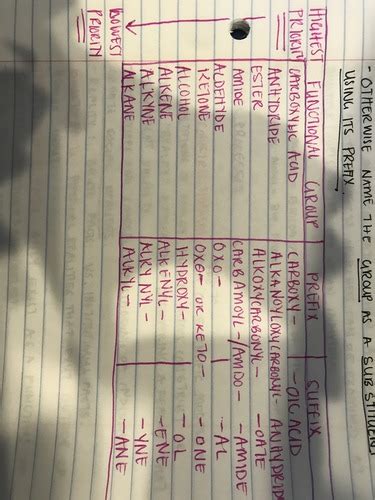 - OTHERWISE NAME THE GROUP AS A SUBSTITUENT
USING ITS PREFIX.
HIGHEST PRIORITY FUNCTIONAL GROUP PREFIX SUFFIX
CARBOXYLIC ACID CARBOXY- -OIC ACID
ANHYDRIDE ALKANOYLOXYCARBONYL- ANHYDRIDE
ESTER ALKOXYCARBONYL- -OATE
AMIDE CARBAMOYL-/AMIDO- -AMIDE
ALDEHYDE OXO- -AL
KETONE OXO- OR KETO- -ONE
ALCOHOL HYDROXY- -OL
ALKENE ALKENYL- -ENE
ALKYNE ALKYNYL- -YNE
LOWEST PRIORITY ALKANE ALKYL- -ANE